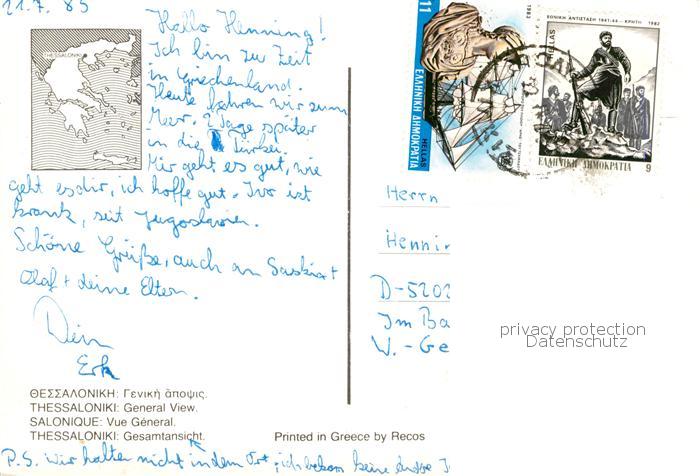 21.7.83
Hallo Henning!
Ich bin zur Zeit
in Griechenland.
Heute fahren wir zum
Meer. 2 Tage später
in die Türkei.
Mir geht es gut, wie
geht es dir, ich hoffe gut. Ivo ist
krank, seit Jugoslavien.
Schöne Grüße, auch an Saskia +
Olaf + deine Eltern.
Dein
Erk
THESSALONIKI
ΘΕΣΣΑΛΟΝΙΚΗ: Γενική ἄποψις.
THESSALONIKI: General View.
SALONIQUE: Vue Géneral.
THESSALONIKI: Gesamtansicht.
Printed in Greece by Recos
P.S. Wir halten nicht in dem Ort, ich bekam keine andre
11
1983
ΕΛΛΗΝΙΚΗ ΔΗΜΟΚΡΑΤΙΑ
HELLAS
ΕΘΝΙΚΗ ΑΝΤΙΣΤΑΣΗ 1941-44 - ΚΡΗΤΗ 1982
HELLAS
ΕΛΛΗΝΙΚΗ ΔΗΜΟΚΡΑΤΙΑ 9
Herrn
Hennin
D-5202
Im Ba
W.-Ge
privacy protection
Datenschutz